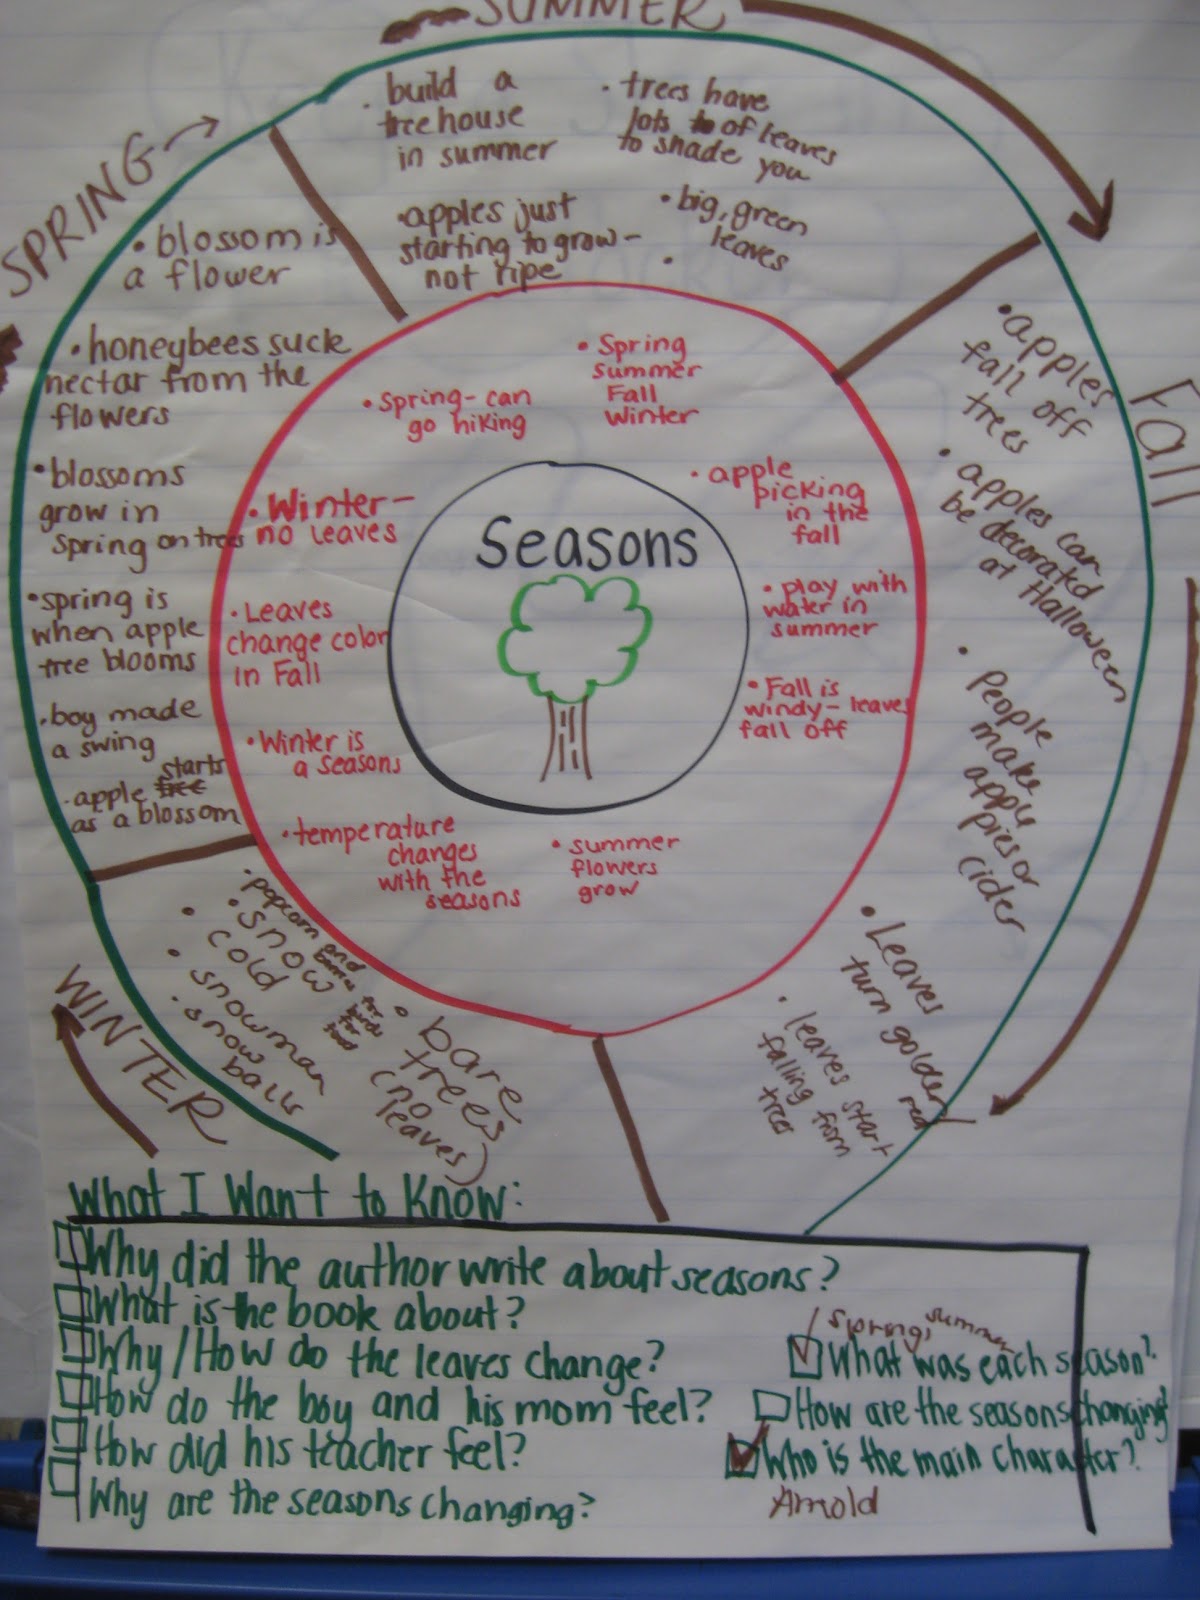 SUMMER
SPRING
Fall
WINTER
• build a
treehouse
in summer
• trees have
lots of leaves
to shade you
• apples just
starting to grow-
not ripe
• big, green
leaves
•
• blossom is
a flower
• honeybees suck
nectar from the
flowers
• blossoms
grow in
spring on trees
• spring is
when apple
tree blooms
• boy made
a swing
starts
• apple tree
as a blossom
• Spring - can
go hiking
• Spring
summer
Fall
Winter
• Winter -
no leaves
• Leaves
change color
in Fall
• Winter is
a seasons
• temperature
changes
with the
seasons
• summer
flowers
grow
• apple
picking
in the
fall
• play with
water in
summer
• Fall is
windy - leaves
fall off
Seasons
• apples
fall off
trees
• apples can
be decoratd
at Halloween
• People
make
apple
pies or
cider
• Leaves
turn golden/
red
• leaves start
falling from
trees
• popcorn and
berries for
birds
for
• snow
• cold
• snowman
• snow
balls
• bare
trees
(no
leaves)
What I Want to Know:
Why did the author write about seasons?
What is the book about?
Why/How do the leaves change?
How do the boy and his mom feel?
How did his teacher feel?
Why are the seasons changing?
spring, summer
What was each season?
How are the seasons changing?
Who is the main character?
Arnold